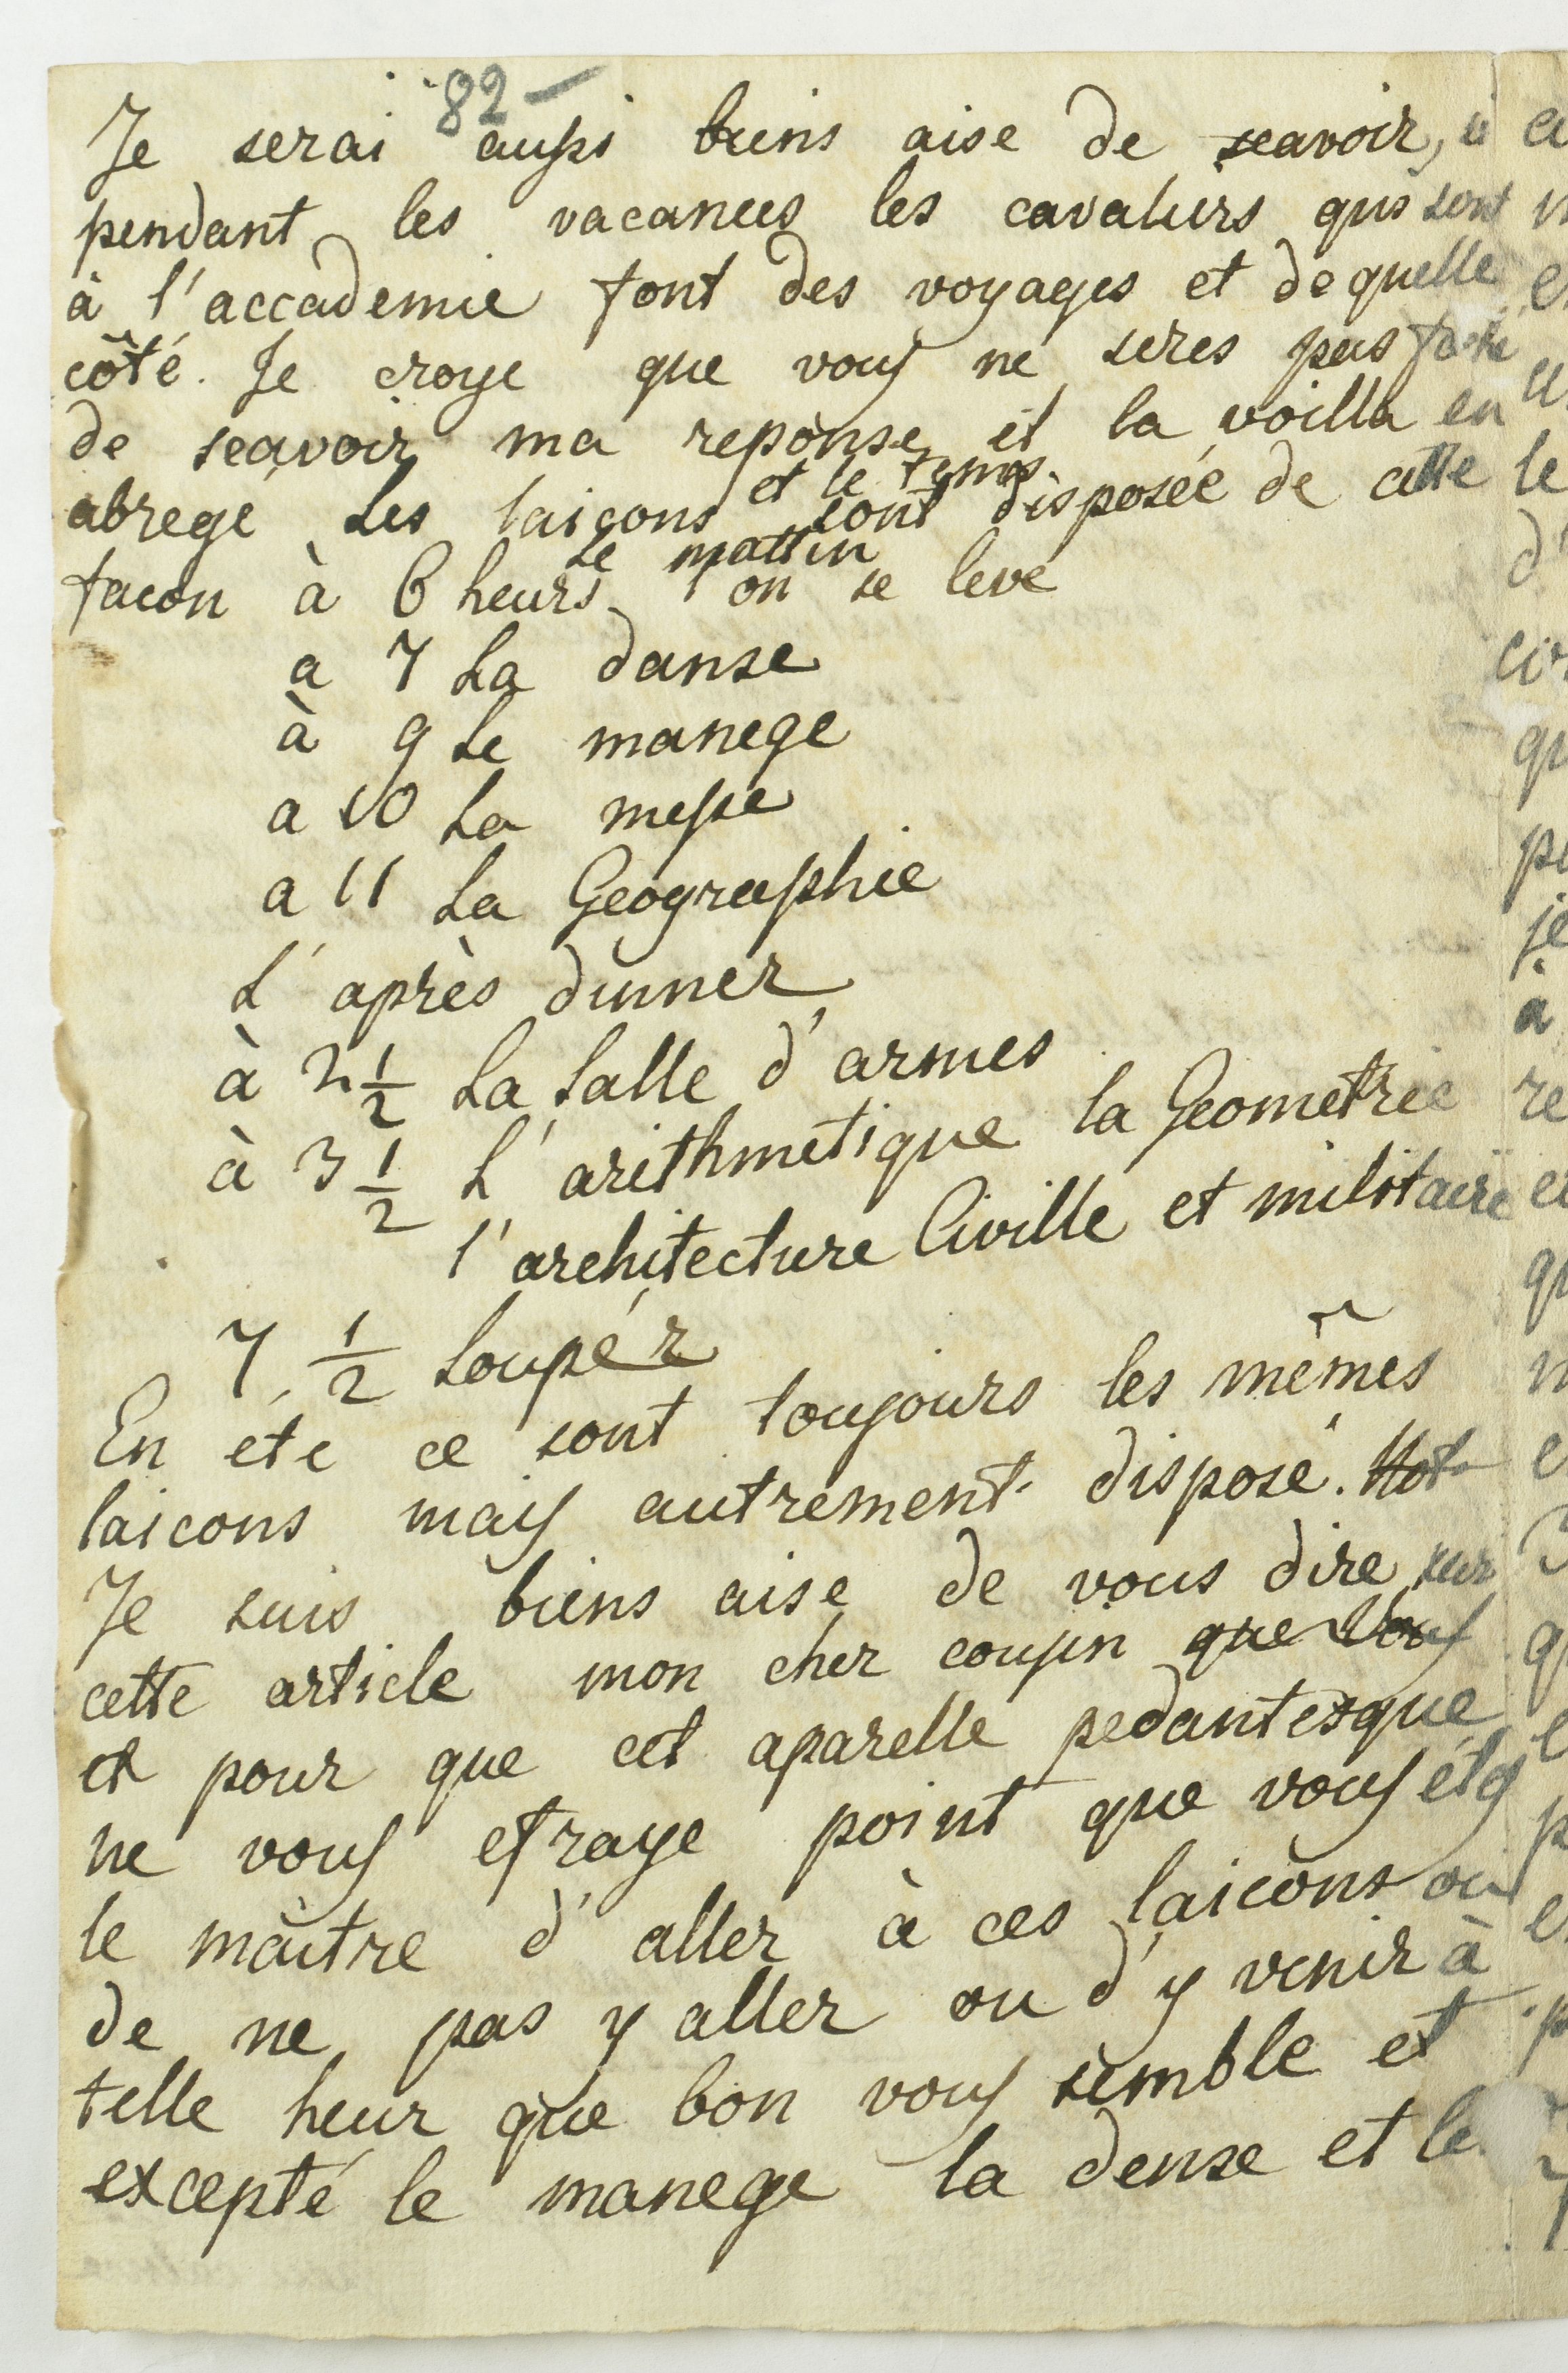 82 —
Je serai aussi biens aise de sçavoir, si
pendant les vacances les cavaliers qui sont
à l'accademie font des voyages et de quelle
côté. Je croye que vous ne seres pas faché
de sçavoir ma reponse et la voilla en
abregé Les laiçons et le temps sont disposée de cette
facon à 6 heurs Le mattin l'on se leve
a 7 La danse
à 9 Le manege
a 10 La messe
a 11 La Geographie
L'après dinner
à 2 1/2 La Salle d'armes
à 3 1/2 L'arithmetique la Geometrie
l'architecture Civille et militaire
7 1/2 Soupér
En éte ce sont toujours les mêmes
laicons mais autrement disposé.
Je suis biens aise de vous dire sur
cette article mon cher cousin que vous
et pour que cet aparelle pedantesque
ne vous efraye point que vous étes
le maître d'aller à ces laicons ou
de ne pas y aller ou d'y venir à
telle heur que bon vous semble et
excepté le manege la dense et le